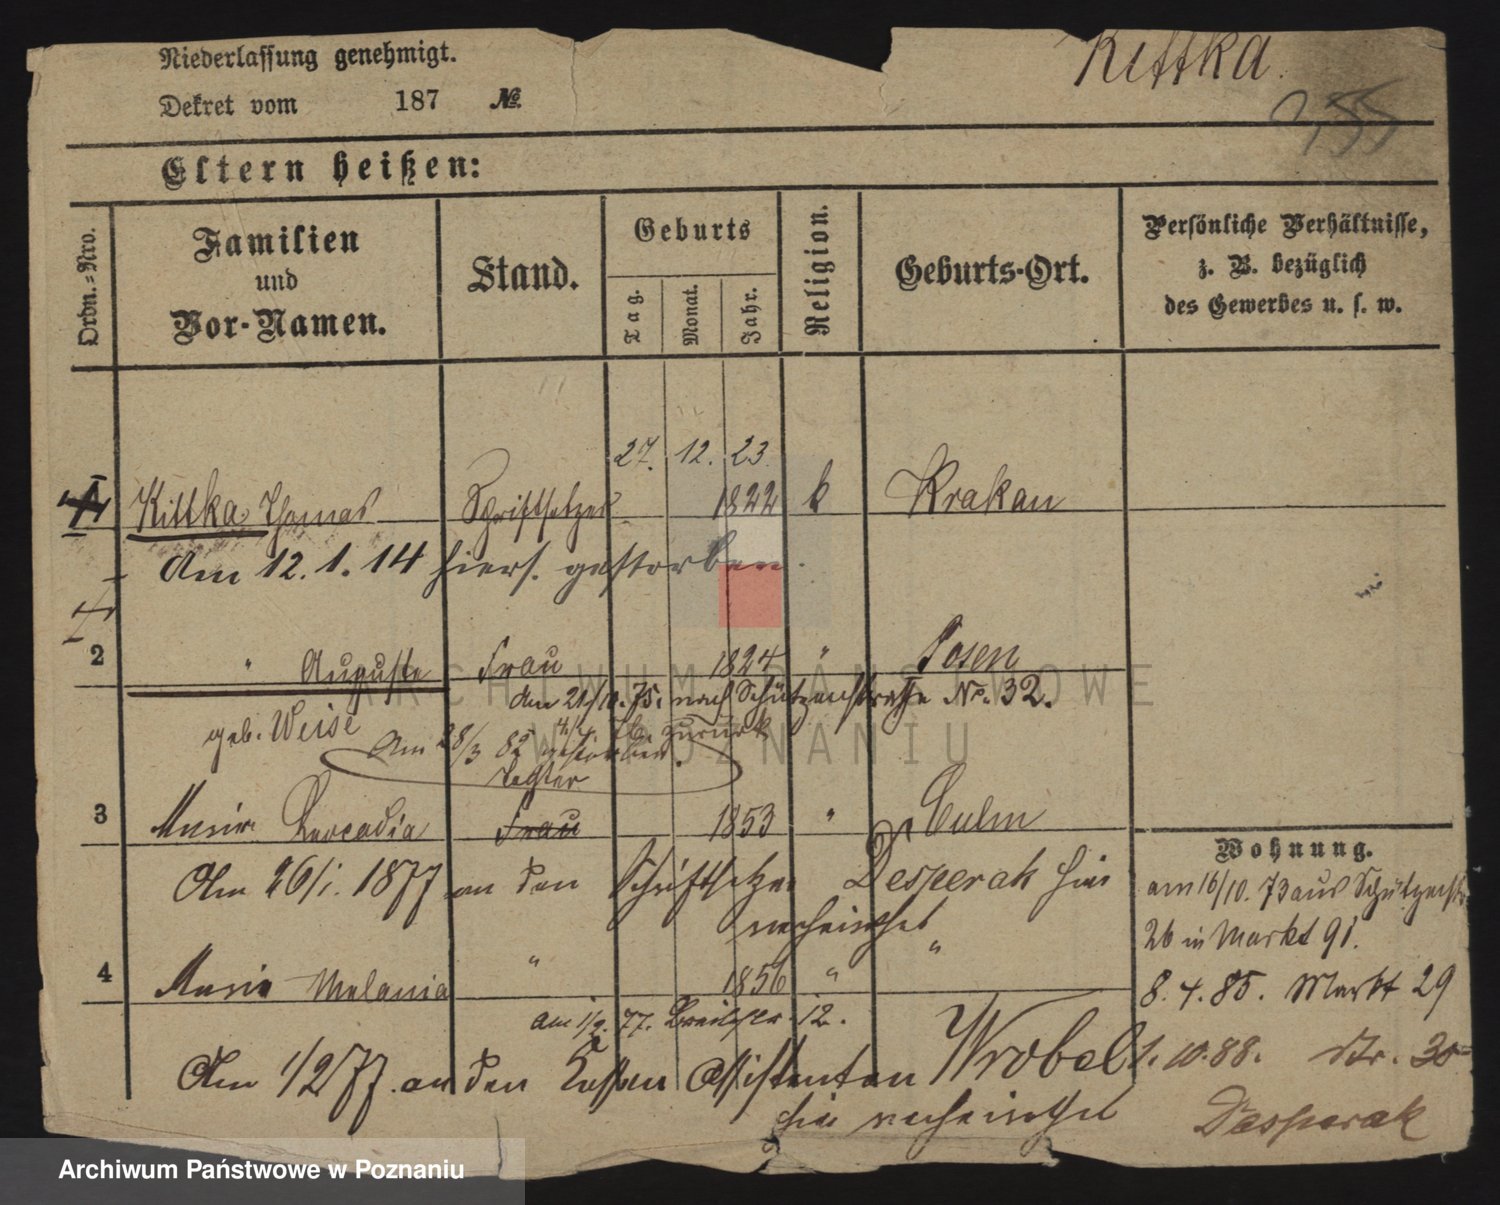 Niederlassung genehmigt.
Kittka
Dekret vom 187 No.
355
Eltern heißen:
Ordn.-Nro.
Familien und Vor-Namen.
Stand.
Geburts
Tag.
Monat.
Jahr.
Religion.
Geburts-Ort.
Persönliche Verhältnisse,
z. B. bezüglich
des Gewerbes u. s. w.
27. 12. 23
1 Kittka Thomas Schriftsetzer 1822 k Krakau
Am 12. 1. 14 hiers. gestorben.
2 " Auguste Frau 1824 " Posen
geb. Weise
Am 21/10. 75. nach Schützenstraße No. 32.
zurück
Am 28/3 82 gestorben.
Tochter
3 Marie Leocadia Frau 1853 " Culm
Am 26/1. 1877 an den Schriftsetzer Desperak hier
verheirathet
4 Marie Melania " 1856 " "
am 1/2. 77. Breitestr. 12.
Am 1/2 77. an den Kassen Assistenten Wrobel
hier verheirathet
Wohnung.
am 16/10. 73 aus Schützenstr.
26 in Markt 91.
8. 4. 85. Markt 29
1. 10. 88. 30
Desperak
ARCHIWUM PAŃSTWOWE
W POZNANIU
Archiwum Państwowe w Poznaniu